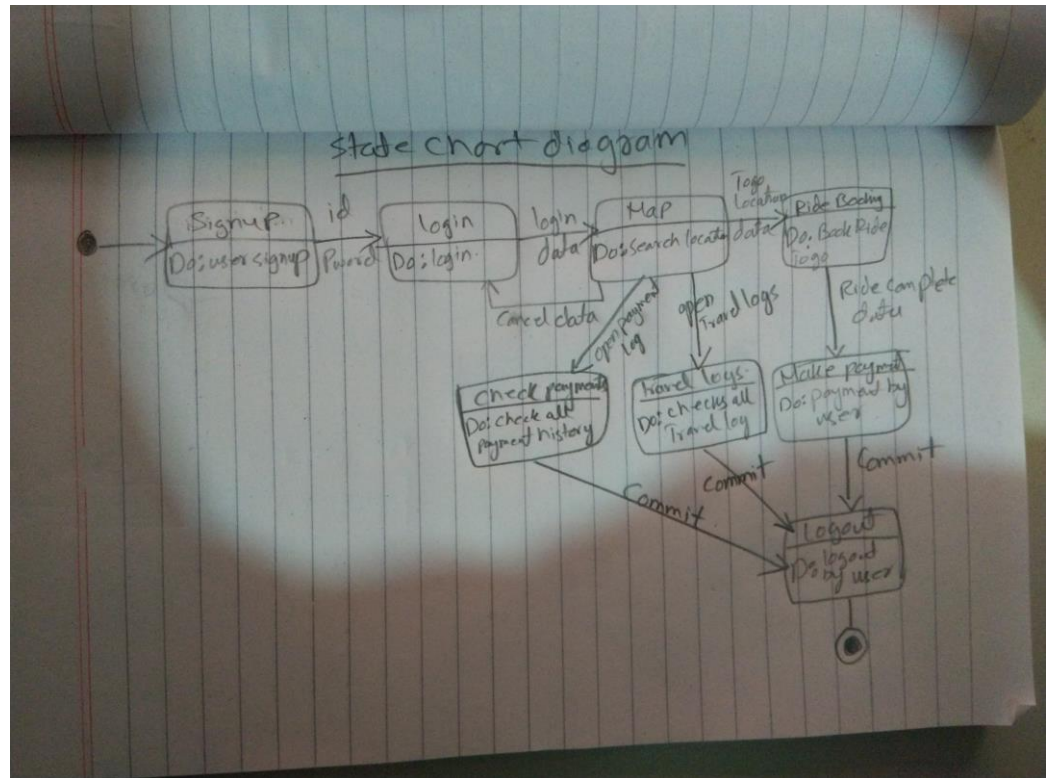 State chart diagram
Signup
Do: user signup
id
Pword
login
Do: login.
login
data
Map
Do: search locatio
Togo
Location
data
Ride Booking
Do: Book Ride
Togo
Cancel data
open payment
log
open
Travel logs
Ride complete
data
Check payments
Do: check all
payment history
travel logs.
Do: checks all
Travel log
Make payment
Do: payment by
user
Commit
Commit
Commit
Logout
Do: logout
by user